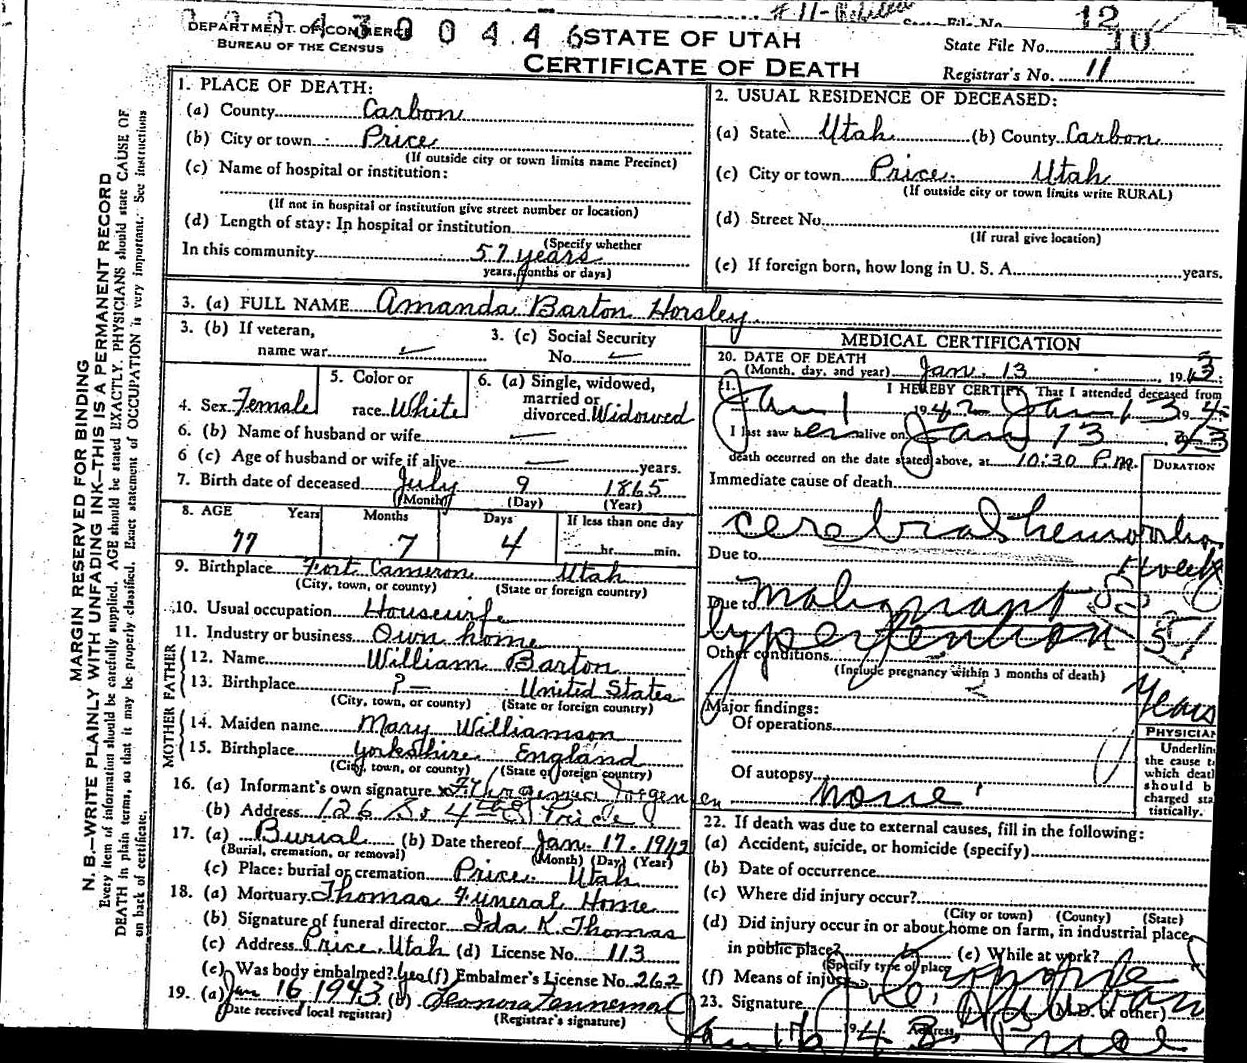 # 11-
State File No. 12
DEPARTMENT OF COMMERCE
0 0 4 3 0 0 4 4 6
BUREAU OF THE CENSUS
STATE OF UTAH
CERTIFICATE OF DEATH
State File No. 10
Registrar's No. 11
MARGIN RESERVED FOR BINDING
N. B.—WRITE PLAINLY WITH UNFADING INK—THIS IS A PERMANENT RECORD
Every item of information should be carefully supplied. AGE should be stated EXACTLY. PHYSICIANS should state CAUSE OF
DEATH in plain terms, so that it may be properly classified. Exact statement of OCCUPATION is very important. See instructions
on back of certificate.
1. PLACE OF DEATH:
(a) County Carbon
(b) City or town Price
(If outside city or town limits name Precinct)
(c) Name of hospital or institution:
(If not in hospital or institution give street number or location)
(d) Length of stay: In hospital or institution
(Specify whether
In this community 57 years
years, months or days)
2. USUAL RESIDENCE OF DECEASED:
(a) State Utah (b) County Carbon
(c) City or town Price Utah
(If outside city or town limits write RURAL)
(d) Street No.
(If rural give location)
(e) If foreign born, how long in U. S. A. years.
3. (a) FULL NAME Amanda Barton Horsley
3. (b) If veteran,
name war
3. (c) Social Security
No.
4. Sex Female
5. Color or
race White
6. (a) Single, widowed,
married or
divorced Widowed
6. (b) Name of husband or wife
6 (c) Age of husband or wife if alive years.
7. Birth date of deceased July 9 1865
(Month) (Day) (Year)
8. AGE Years Months Days If less than one day
77 7 4 hr. min.
9. Birthplace Fort Cameron Utah
(City, town, or county) (State or foreign country)
10. Usual occupation Housewife
11. Industry or business Own home
FATHER
12. Name William Barton
13. Birthplace ?— United States
(City, town, or county) (State or foreign country)
MOTHER
14. Maiden name Mary Williamson
15. Birthplace Yorkshire England
(City, town, or county) (State or foreign country)
16. (a) Informant's own signature Jorgensen
(b) Address 126 So 4th Price
17. (a) Burial (b) Date thereof Jan. 17. 1943
(Burial, cremation, or removal) (Month) (Day) (Year)
(c) Place: burial or cremation Price Utah
18. (a) Mortuary Thomas Funeral Home
(b) Signature of funeral director Ida K. Thomas
(c) Address Price, Utah (d) License No. 113
(e) Was body embalmed? Yes (f) Embalmer's License No. 262
19. (a) Jan 16, 1943 (b) Leonora
(Date received local registrar) (Registrar's signature)
MEDICAL CERTIFICATION
20. DATE OF DEATH
(Month, day, and year) Jan. 13 1943
21. I HEREBY CERTIFY That I attended deceased from
Jan 1 1942 Jan 13 194
I last saw her alive on Jan 13
death occurred on the date stated above, at 10:30 P.m.
DURATION
Immediate cause of death
cerebral hemorrhage
Due to
1 week
Due to malignant
hypertension 5
Years
Other conditions
(Include pregnancy within 3 months of death)
Major findings:
Of operations
Of autopsy none
PHYSICIAN
Underline
the cause to
which death
should be
charged sta-
tistically.
22. If death was due to external causes, fill in the following:
(a) Accident, suicide, or homicide (specify)
(b) Date of occurrence
(c) Where did injury occur?
(City or town) (County) (State)
(d) Did injury occur in or about home on farm, in industrial place,
in public place? (e) While at work?
(Specify type of place)
(f) Means of injury
23. Signature
(M.D. or other)
Jan 16 1943 Address Price